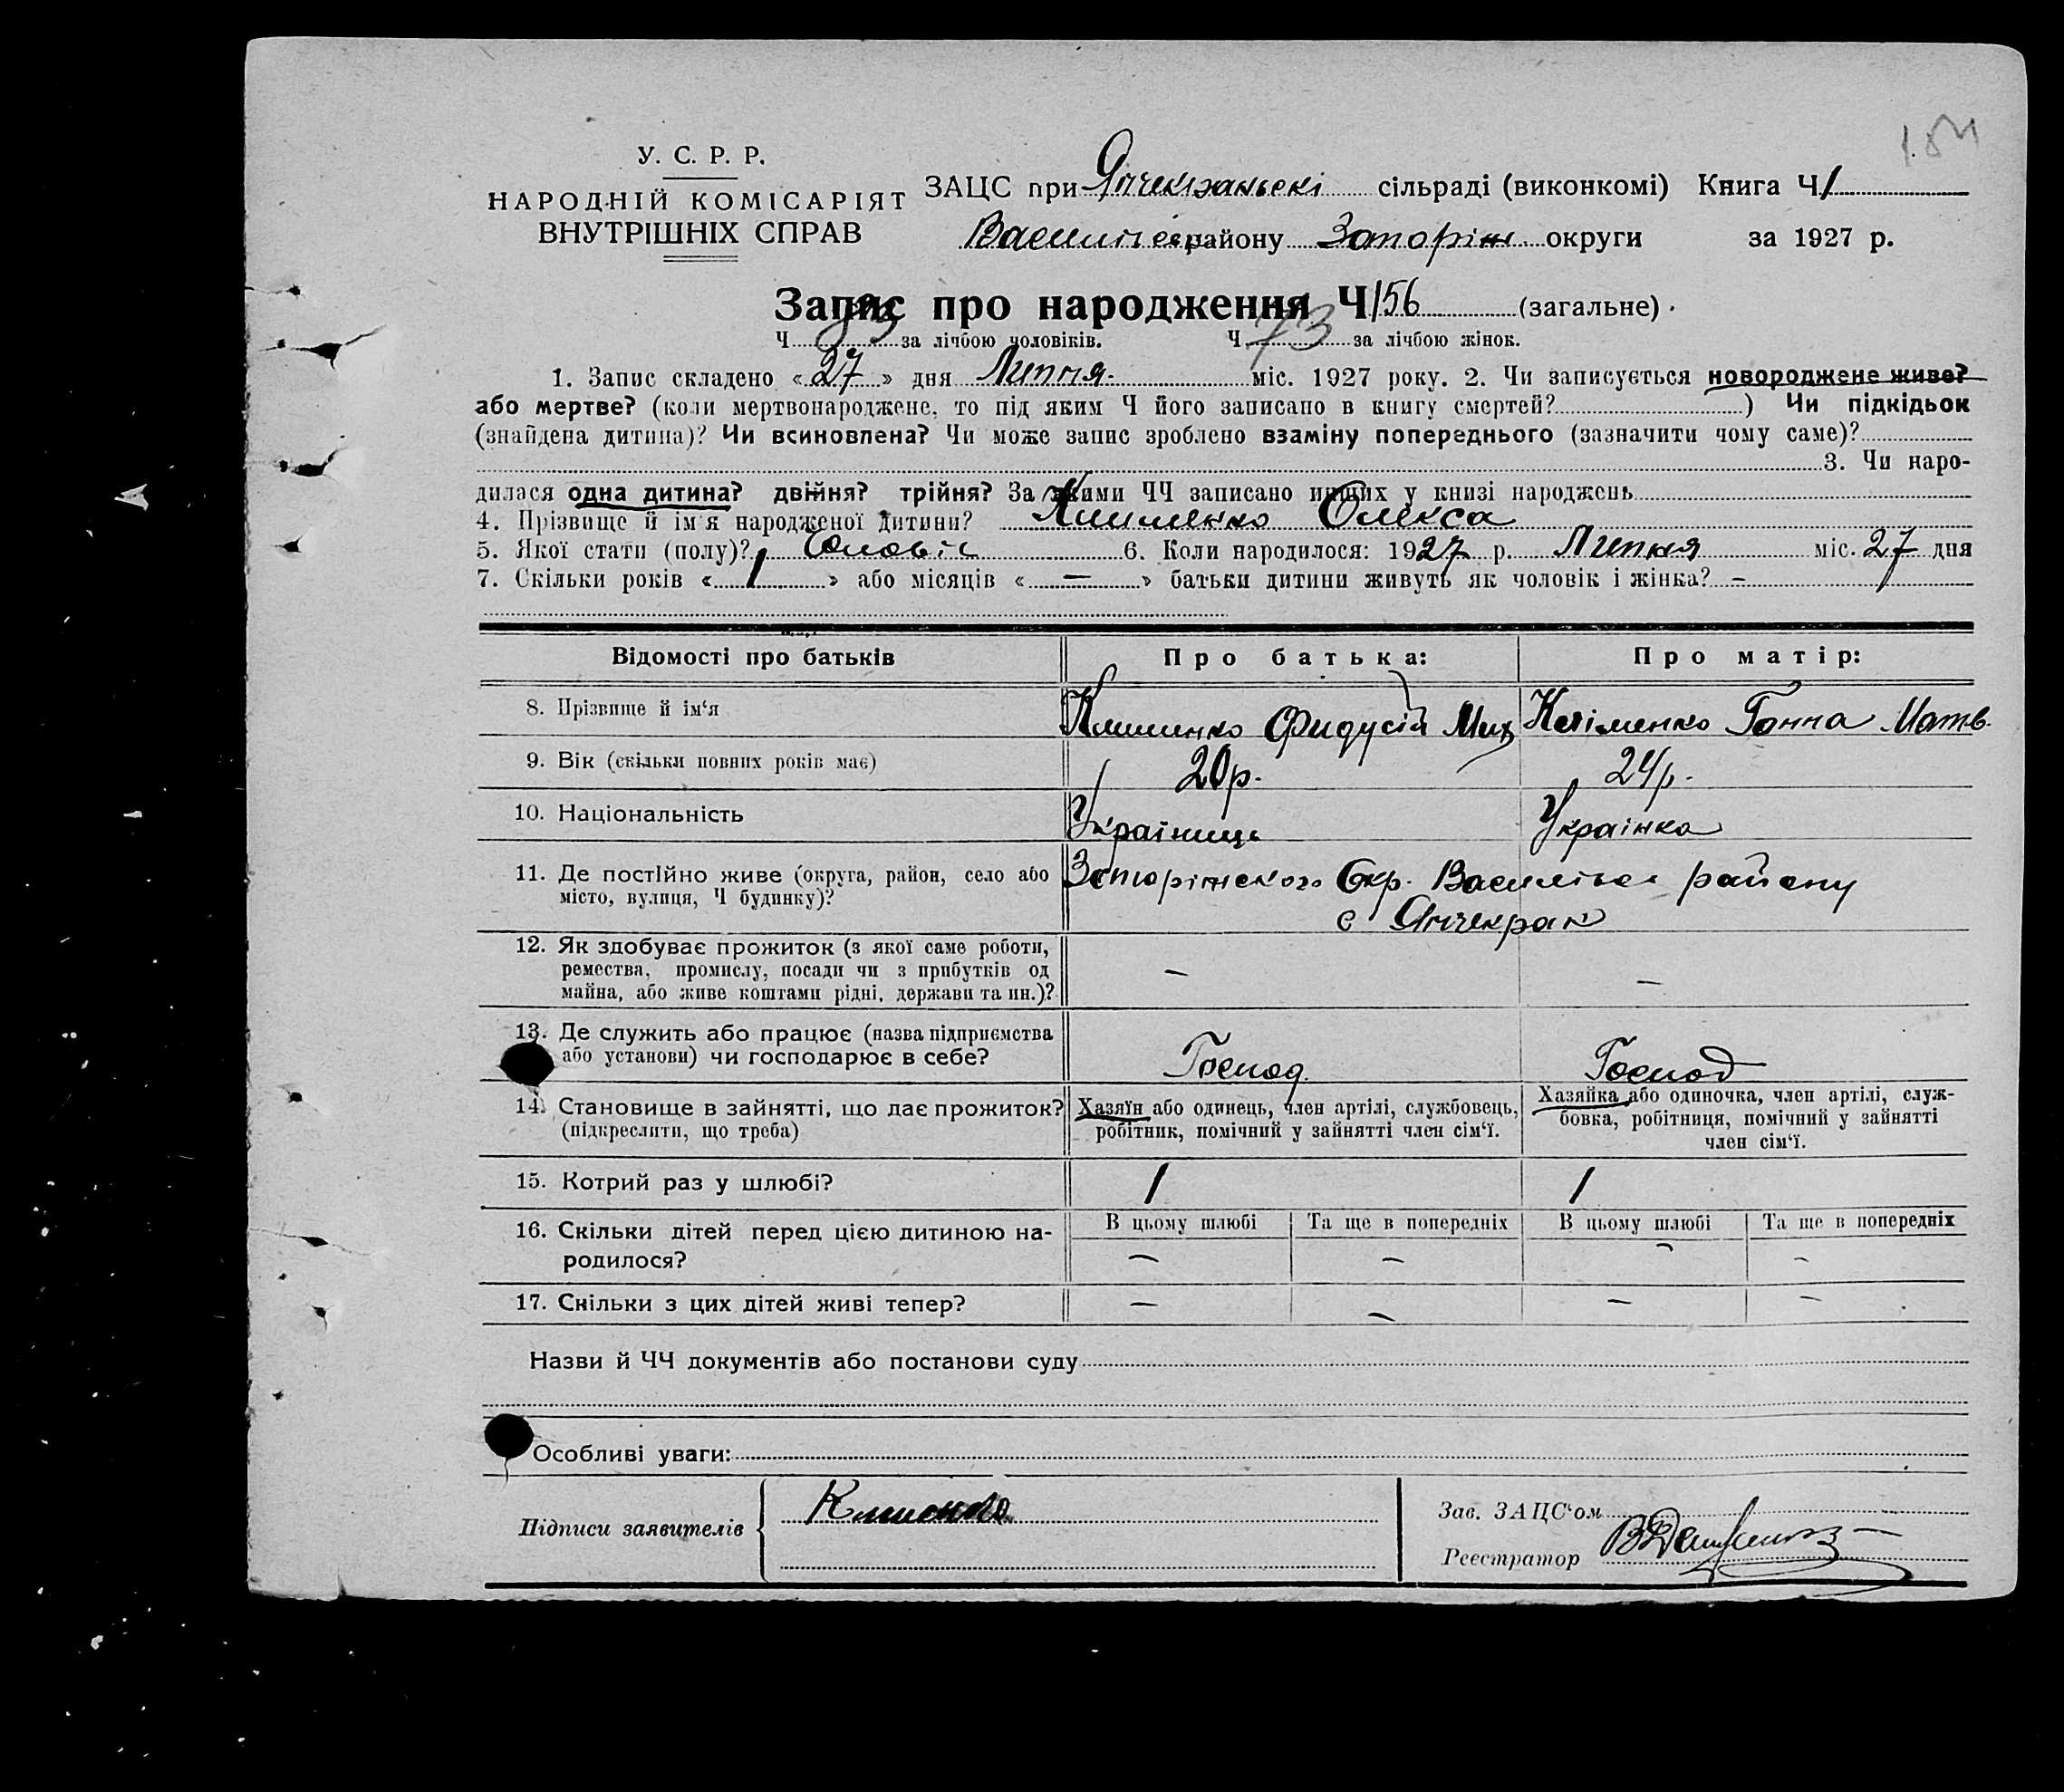 У. С. Р. Р.
НАРОДНІЙ КОМІСАРІЯТ
ВНУТРІШНІХ СПРАВ
ЗАЦС при Янчекракській сільраді (виконкомі) Книга Ч 1
Василівськ району Запоріж округи за 1927 р.
Запис про народження Ч 156 (загальне)
Ч 83 за лічбою чоловіків. Ч 73 за лічбою жінок.
1. Запис складено «27» дня Липня міс. 1927 року. 2. Чи записується новороджене живе?
або мертве? (коли мертвонароджене, то під яким Ч його записано в книгу смертей?) Чи підкідьок
(знайдена дитина)? Чи всиновлена? Чи може запис зроблено взаміну попереднього (зазначити чому саме)?
3. Чи наро-
дилася одна дитина? двійня? трійня? За якими ЧЧ записано инших у книзі народжень
4. Прізвище й ім'я народженої дитини? Клименко Олекса
5. Якої стати (полу)? Чоловік 6. Коли народилося: 1927 р. Липня міс. 27 дня
7. Скільки років « 1 » або місяців « — » батьки дитини живуть як чоловік і жінка? –
Відомості про батьків Про батька: Про матір:
8. Прізвище й ім‘я Клименко Мих Кліменко Ганна Матв.
9. Вік (скільки повних років має) 20р. 24р.
10. Національність Українець Українка
11. Де постійно живе (округа, район, село або Запоріжского Окр. Васильевс району
місто, вулиця, Ч будинку)? с Янчекрак
12. Як здобуває прожиток (з якої саме роботи,
ремества, промислу, посади чи з прибутків од — —
майна, або живе коштами рідні, держави та ин.)?
13. Де служить або працює (назва підприємства
або установи) чи господарює в себе? Господ. Господ
14. Становище в зайнятті, що дає прожиток? Хазяїн або одинець, член артілі, службовець, Хазяйка або одиночка, член артілі, служ-
(підкреслити, що треба) робітник, помічний у зайнятті член сім‘ї. бовка, робітниця, помічний у зайнятті
член сім‘ї.
15. Котрий раз у шлюбі? 1 1
16. Скільки дітей перед цією дитиною на- В цьому шлюбі Та ще в попередніх В цьому шлюбі Та ще в попередніх
родилося? — — — —
17. Скільки з цих дітей живі тепер? — — — —
Назви й ЧЧ документів або постанови суду
Особливі уваги:
Підписи заявителів Клименко
Зав. ЗАЦС‘ом
Реєстратор